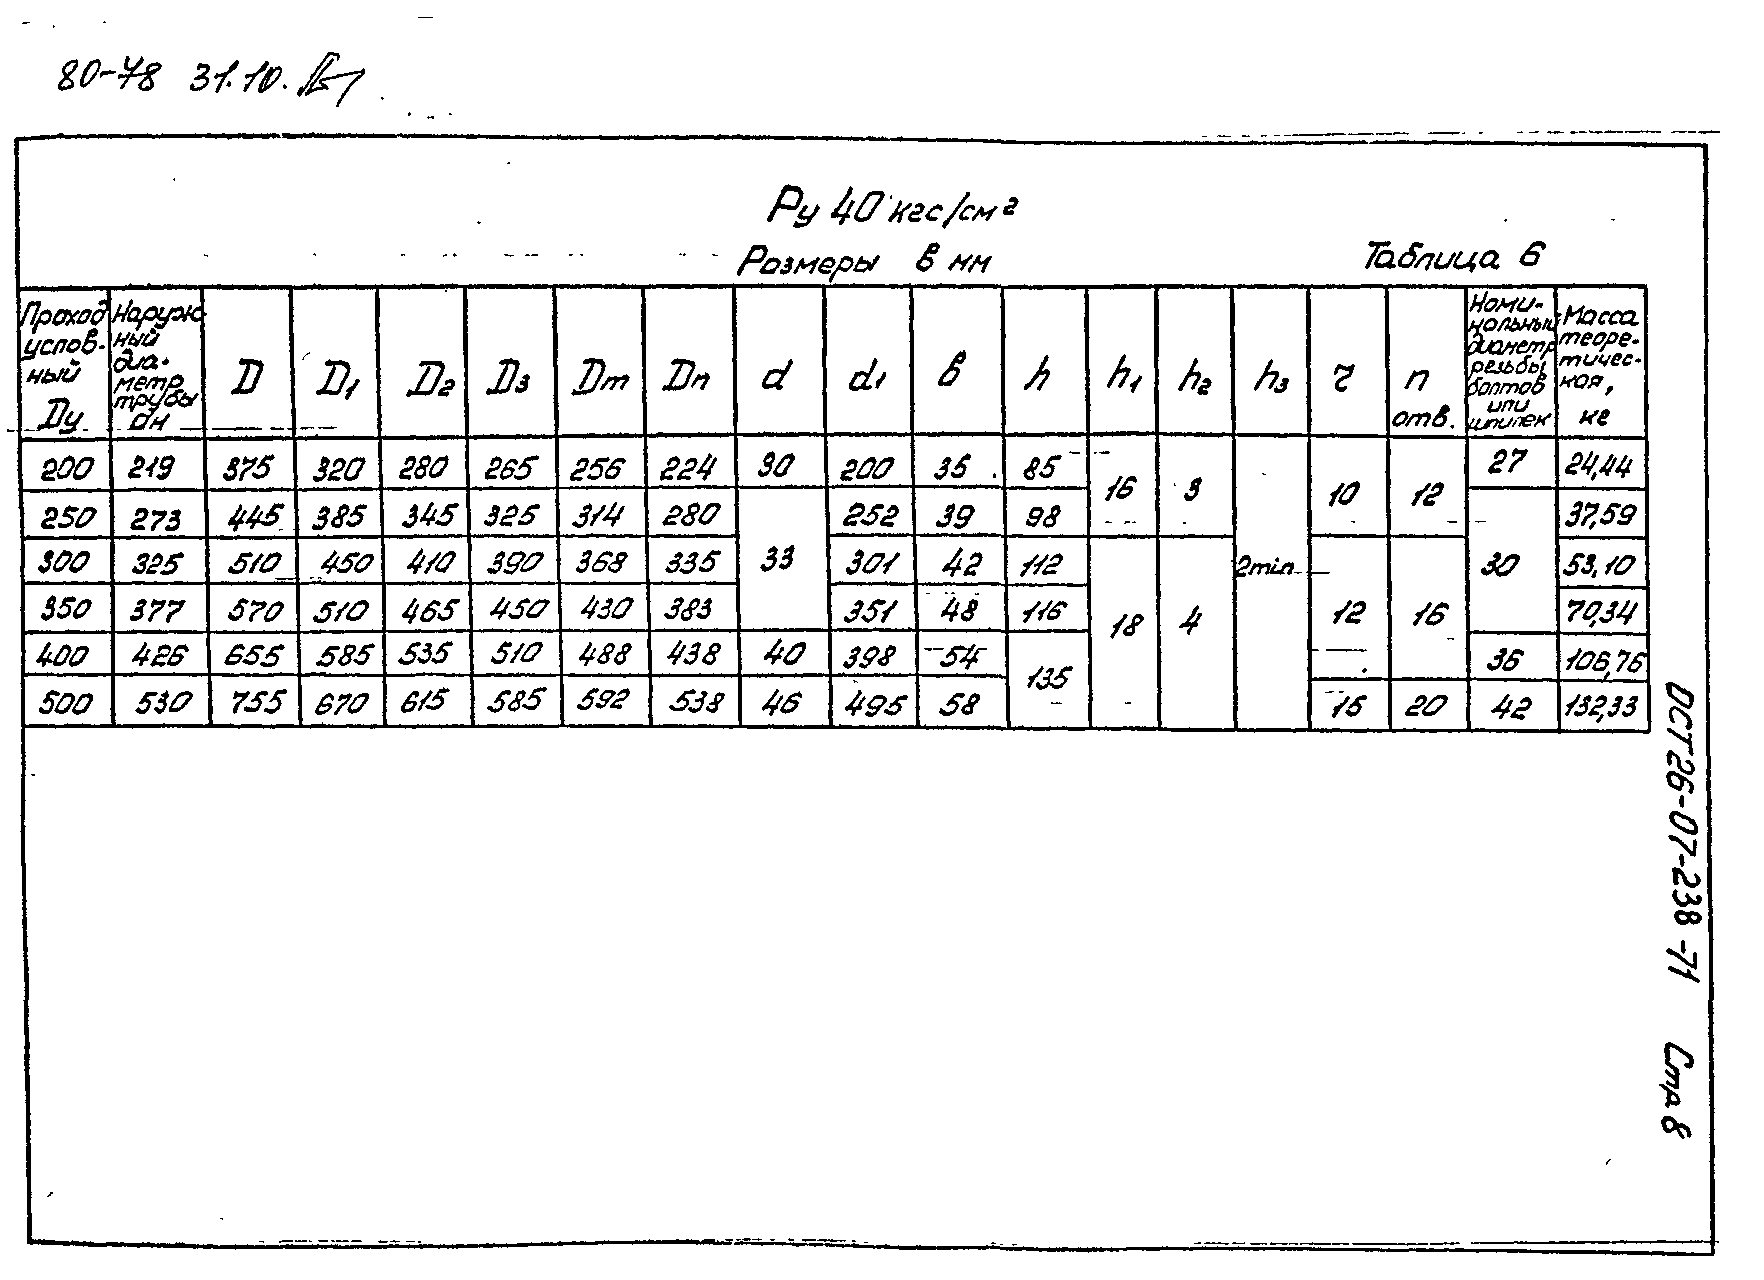 80-78 31.10.
Ру 40 кгс/см²
Размеры в мм
Таблица 6
Проход услов-ный Ду | Наруж ный диа-метр трубы dн | D | D1 | D2 | D3 | Dm | Dn | d | d1 | в | h | h1 | h2 | h3 | r | n отв. | Номи-нольный диаметр резьбы болтов или шпилек | Масса теоре-тичес-кая, кг
200 219 375 320 280 265 256 224 30 200 35 85 16 3 2min 10 12 27 24,44
250 273 445 385 345 325 314 280 33 252 39 98 30 37,59
300 325 510 450 410 390 368 335 301 42 112 18 4 12 16 53,10
350 377 570 510 465 450 430 383 351 48 116 70,34
400 426 655 585 535 510 488 438 40 398 54 135 36 106,76
500 530 755 670 615 585 592 538 46 495 58 15 20 42 132,33
ОСТ26-07-238-71 Стр 8